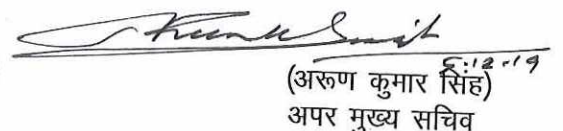 6.12.19
(अरूण कुमार सिंह)
अपर मुख्य सचिव